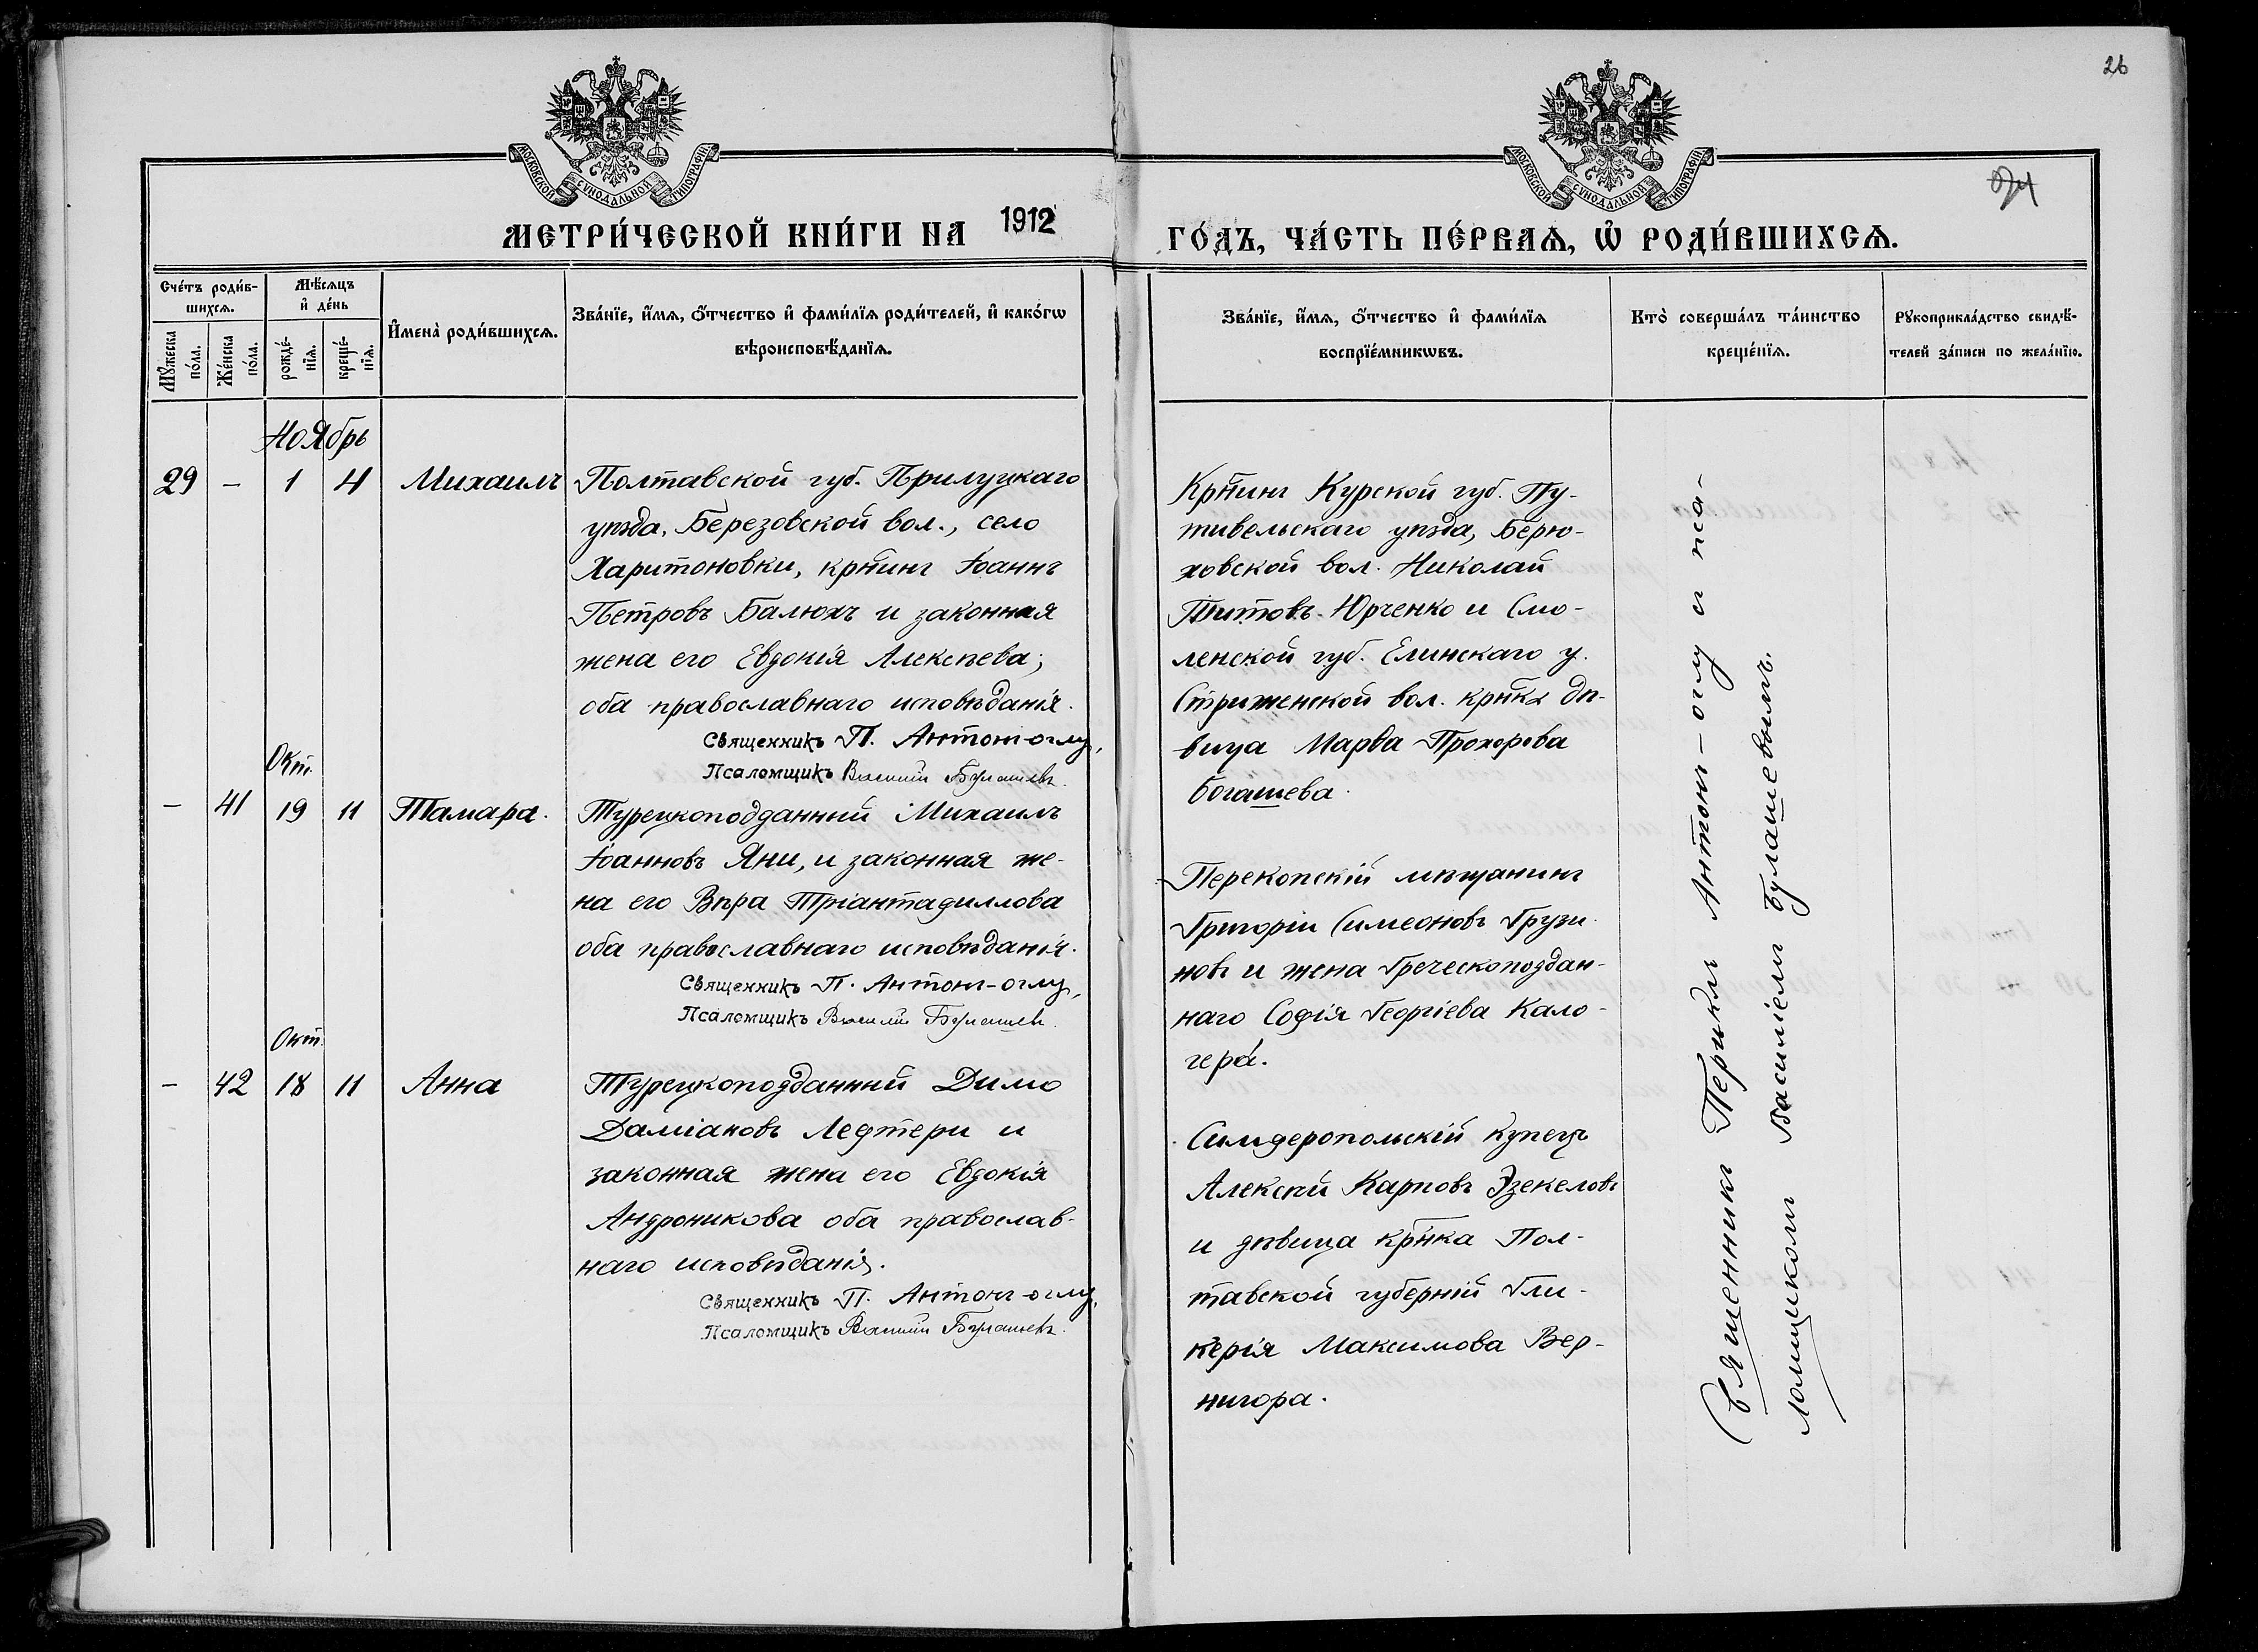 26
МОСКОВСКОЙ СѴНОДАЛЬНОЙ ТИПОГРАФІИ
МОСКОВСКОЙ СѴНОДАЛЬНОЙ ТИПОГРАФІИ
МЕТРИ́ЧЕСКОЙ КНИ́ГИ НА 1912 ГО́ДЪ, ЧА́СТЬ ПЕ́РВАѦ, Ѡ҆ РОДИ́ВШИХСѦ.
Сче́тъ роди́в-
шихсѧ.
Мꙋ́жеска
по́ла.
Же́нска
по́ла.
Мѣ́сѧцъ
и҆ де́нь
рожде́-
нїѧ.
креще́-
нїѧ.
И҆мена̀ роди́вшихсѧ.
Зва́нїе, и҆́мѧ, ѻ҆́тчество и҆ фами́лїѧ роди́телей, и҆ како́гѡ
вѣроисповѣ́данїѧ.
Зва́нїе, и҆́мѧ, ѻ҆́тчество и҆ фами́лїѧ
воспрїе́мникѡвъ.
Кто̀ соверша́лъ та́инство
креще́нїѧ.
Рꙋкоприкла́дство свидѣ́-
телей за́писи по жела́нїю.
Ноябрь
29 - 1 4 Михаилъ
Полтавской губ. Прилуцкаго
уѣзда, Березовской вол., село
Харитоновки, крн̃инъ Іоаннъ
Петровъ Балюхъ и законная
жена его Евдокія Алексѣева;
оба православнаго исповѣданія.
Священникъ П. Антонъ-оглу,
Псаломщикъ Василій Булашевъ.
Крн̃инъ Курской губ. Пу-
тивельскаго уѣзда, Берю-
ховской вол. Николай
Титовъ Юрченко и Смо-
ленской губ. Елинскаго у.
Стриженской вол. крн̃ка дѣ-
вица Марѳа Прохорова
Богашева.
Окт.
- 41 19 11 Тамара.
Турецкоподданный Михаилъ
Іоанновъ Яни, и законная же-
на его Вѣра Тріантафиллова
оба православнаго исповѣданія.
Священникъ П. Антонъ-оглу,
Псаломщикъ Василій Булашевъ.
Перекопскій мѣщанинъ
Григорій Симеоновъ Грузи-
новъ и жена Греческоподдан-
наго Софія Георгіева Кало-
гера.
Окт.
- 42 18 11 Анна
Турецкоподданный Димо
Даміановъ Лефтери и
законная жена его Евдокія
Андроникова оба православ-
наго исповѣданія.
Священникъ П. Антонъ-оглу,
Псаломщикъ Василій Булашевъ.
Симферопольскій купецъ
Алексѣй Карповъ Эзекеловъ
и дѣвица крн̃ка Пол-
тавской губерніи Гли-
керія Максимова Вер-
нигора.
Священникъ Периклъ Антонъ-оглу и пса-
ломщикомъ Василіемъ Булашевымъ.